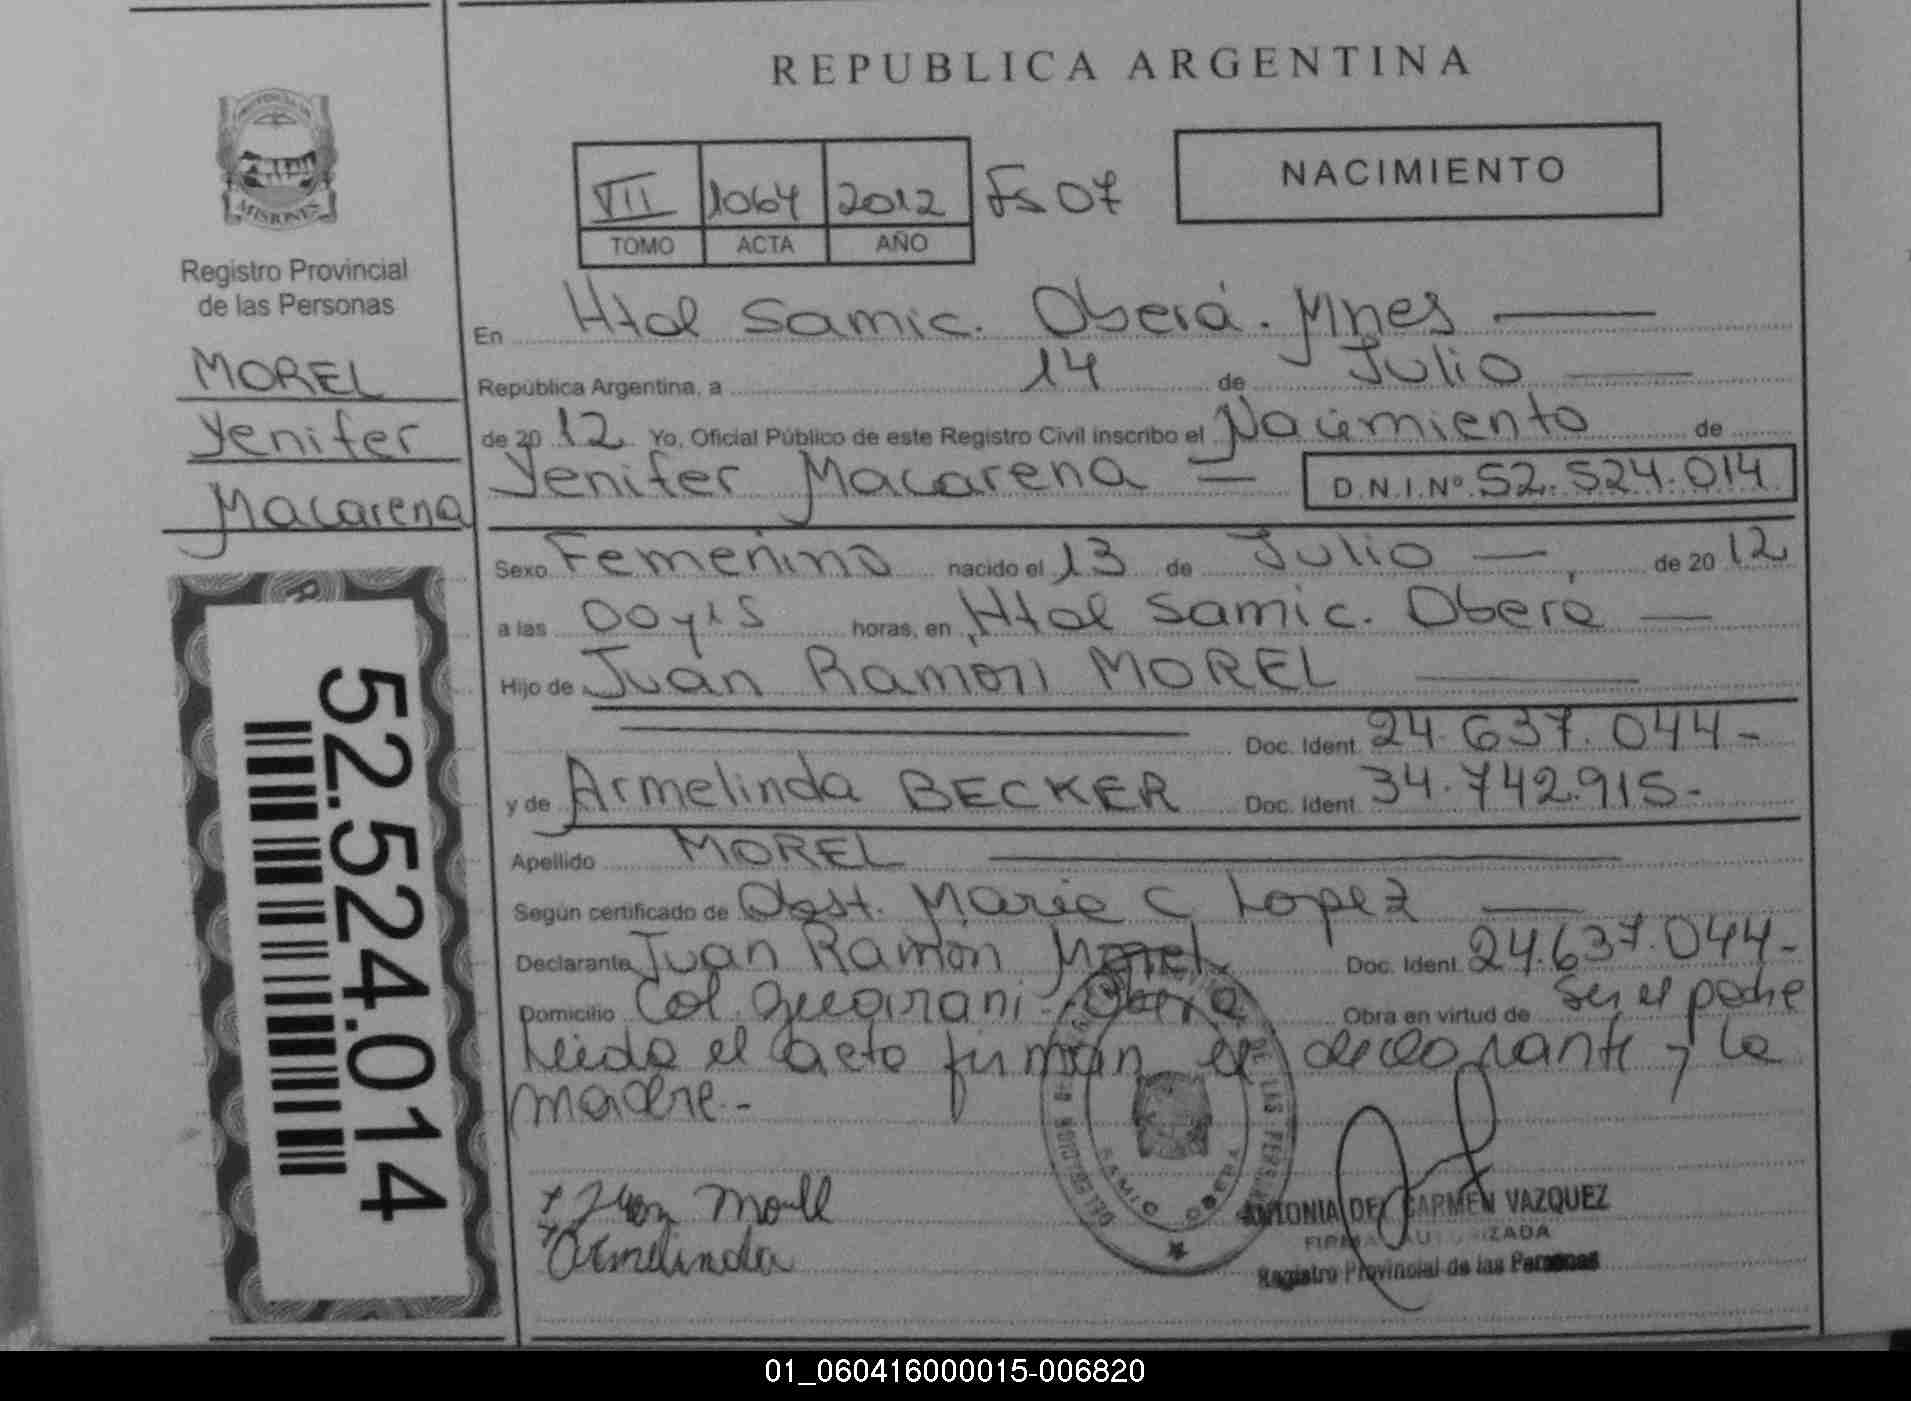 REPUBLICA ARGENTINA
PROVINCIA DE
MISIONES
Registro Provincial
de las Personas
MOREL
Yenifer
Macarena
52.524.014
VII 1064 2012 Fs 07
TOMO ACTA AÑO
NACIMIENTO
En Htal Samic. Oberá. Mnes
República Argentina, a 14 de Julio
de 20 12 Yo, Oficial Público de este Registro Civil inscribo el Nacimiento de
Yenifer Macarena D.N.I.Nº 52.524.014
Sexo Femenino nacido el 13 de Julio de 20 12
a las 00 y 15 horas, en Htal Samic. Oberá
Hijo de Juan Ramón MOREL
Doc. Ident. 24.637.044-
y de Armelinda BECKER Doc. Ident. 34.742.915-
Apellido MOREL
Según certificado de Obst. Maria C Lopez
Declarante Juan Ramón Morel Doc. Ident. 24.637.044-
Domicilio Col. Guarani - Oberá Obra en virtud de ser el padre
Leida el acta firman el declarante y la
madre.-
SAMIC OBERA
Juan Morell
Armelinda
ANTONIA DEL CARMEN VAZQUEZ
FIRMA AUTORIZADA
Registro Provincial de las Personas
01_060416000015-006820